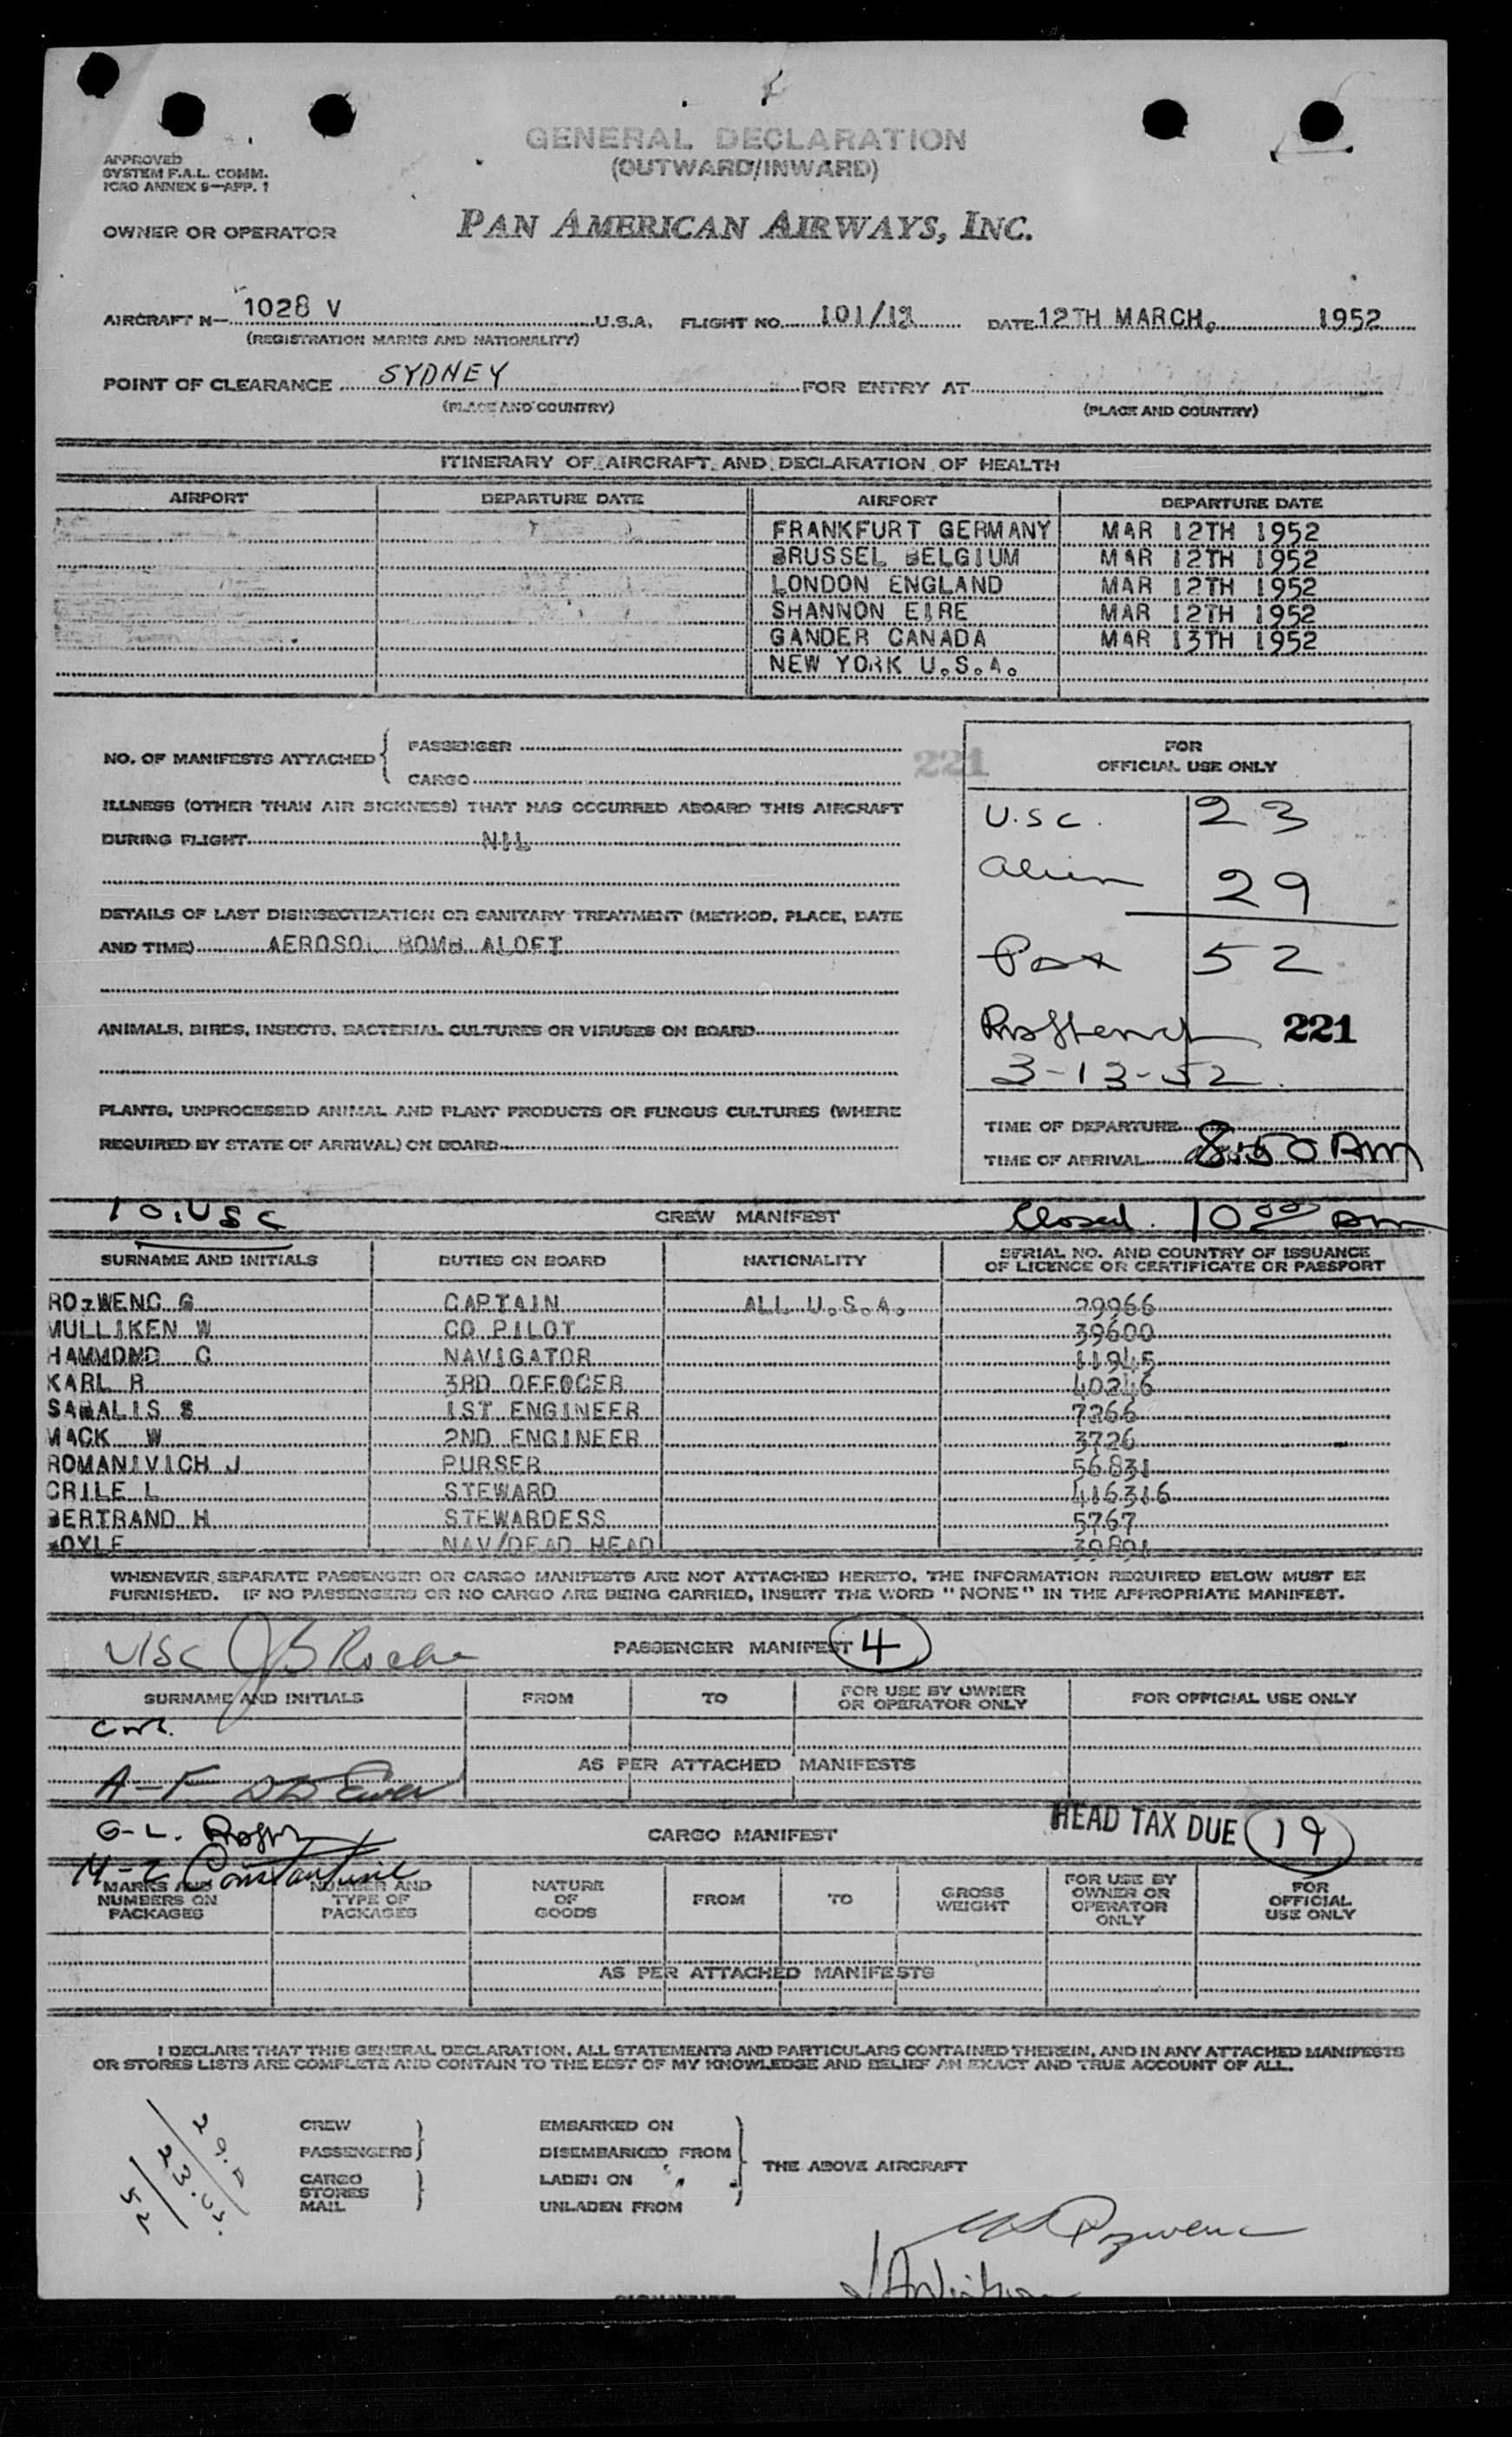 GENERAL DECLARATION
(OUTWARD/INWARD)
APPROVED
SYSTEM F.A.L. COMM.
ICAO ANNEX 9—APP. 1
OWNER OR OPERATOR PAN AMERICAN AIRWAYS, INC.
AIRCRAFT N— 1028 V U.S.A. FLIGHT NO. 101/12 DATE 12TH MARCH, 1952
(REGISTRATION MARKS AND NATIONALITY)
POINT OF CLEARANCE SYDNEY FOR ENTRY AT
(PLACE AND COUNTRY) (PLACE AND COUNTRY)
ITINERARY OF AIRCRAFT AND DECLARATION OF HEALTH
AIRPORT DEPARTURE DATE AIRPORT DEPARTURE DATE
FRANKFURT GERMANY MAR 12TH 1952
BRUSSEL BELGIUM MAR 12TH 1952
LONDON ENGLAND MAR 12TH 1952
SHANNON EIRE MAR 12TH 1952
GANDER CANADA MAR 13TH 1952
NEW YORK U.S.A.
NO. OF MANIFESTS ATTACHED { PASSENGER
CARGO
221
ILLNESS (OTHER THAN AIR SICKNESS) THAT HAS OCCURRED ABOARD THIS AIRCRAFT
DURING FLIGHT NIL
DETAILS OF LAST DISINSECTIZATION OR SANITARY TREATMENT (METHOD, PLACE, DATE
AND TIME) AEROSOL BOMB ALOFT
ANIMALS, BIRDS, INSECTS, BACTERIAL CULTURES OR VIRUSES ON BOARD
PLANTS, UNPROCESSED ANIMAL AND PLANT PRODUCTS OR FUNGUS CULTURES (WHERE
REQUIRED BY STATE OF ARRIVAL) ON BOARD
FOR
OFFICIAL USE ONLY
U.S.C. 23
Alien 29
Pax 52
221
3-13-52
TIME OF DEPARTURE
TIME OF ARRIVAL 8:50 AM
10. USC CREW MANIFEST Closed. 10 00 AM
SURNAME AND INITIALS DUTIES ON BOARD NATIONALITY SERIAL NO. AND COUNTRY OF ISSUANCE
OF LICENCE OR CERTIFICATE OR PASSPORT
ROZWENC G CAPTAIN ALL U.S.A. 29966
MULLIKEN W CO PILOT 39600
HAMMOND C NAVIGATOR 11945
KARL R 3RD OFFOCER 40246
SABALIS S 1ST ENGINEER 7266
MACK W 2ND ENGINEER 3726
ROMANIVICH J PURSER 56831
CRILE L STEWARD 416316
BERTRAND H STEWARDESS 5767
NAV/DEAD HEAD 39891
WHENEVER SEPARATE PASSENGER OR CARGO MANIFESTS ARE NOT ATTACHED HERETO, THE INFORMATION REQUIRED BELOW MUST BE
FURNISHED. IF NO PASSENGERS OR NO CARGO ARE BEING CARRIED, INSERT THE WORD "NONE" IN THE APPROPRIATE MANIFEST.
USC JB Roche PASSENGER MANIFEST 4
SURNAME AND INITIALS FROM TO FOR USE BY OWNER
OR OPERATOR ONLY FOR OFFICIAL USE ONLY
AS PER ATTACHED MANIFESTS
A-F
G-L. CARGO MANIFEST HEAD TAX DUE 19
M-Z Constantine
MARKS AND
NUMBERS ON
PACKAGES NUMBER AND
TYPE OF
PACKAGES NATURE
OF
GOODS FROM TO GROSS
WEIGHT FOR USE BY
OWNER OR
OPERATOR
ONLY FOR
OFFICIAL
USE ONLY
AS PER ATTACHED MANIFESTS
I DECLARE THAT THIS GENERAL DECLARATION, ALL STATEMENTS AND PARTICULARS CONTAINED THEREIN, AND IN ANY ATTACHED MANIFESTS
OR STORES LISTS ARE COMPLETE AND CONTAIN TO THE BEST OF MY KNOWLEDGE AND BELIEF AN EXACT AND TRUE ACCOUNT OF ALL.
CREW EMBARKED ON
PASSENGERS DISEMBARKED FROM
CARGO LADEN ON THE ABOVE AIRCRAFT
STORES
MAIL UNLADEN FROM